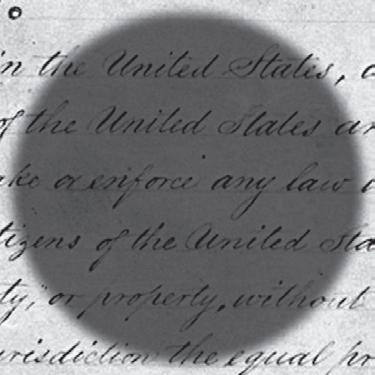 in the United States, a
of the United States ar
ake or enforce any law
tizens of the United Sta
ty, or property, without
urisdiction the equal pr